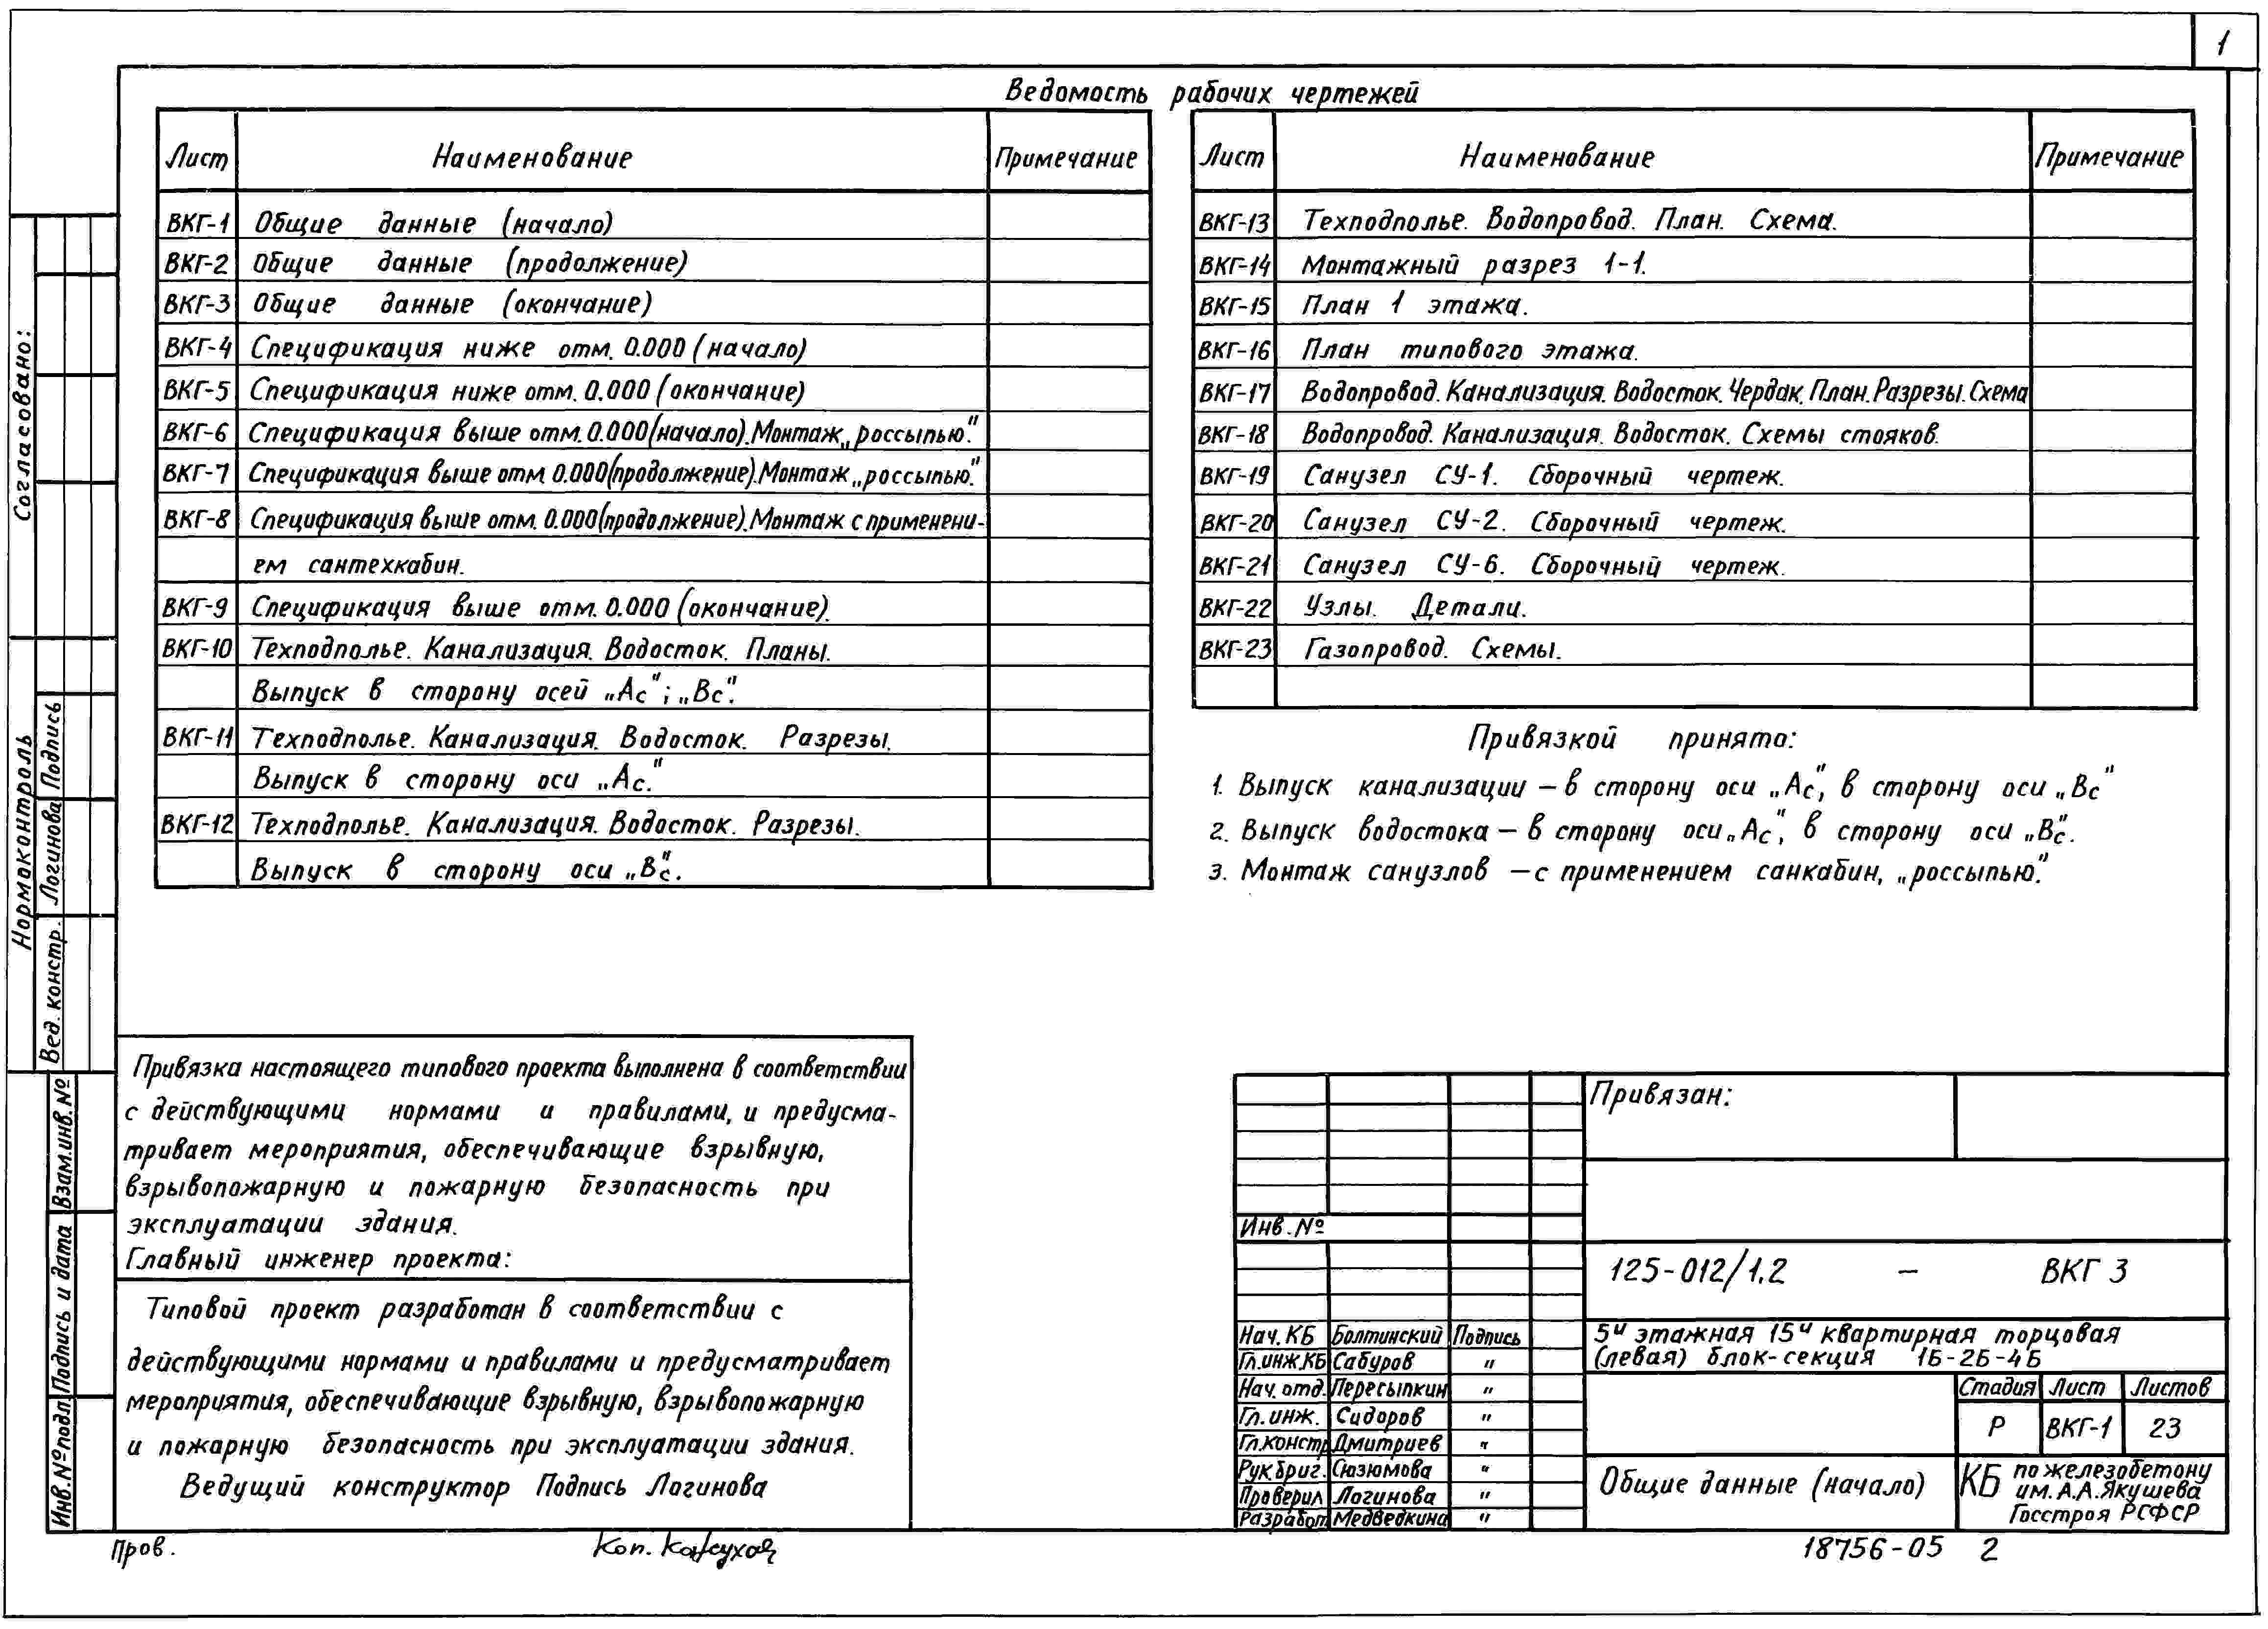 1
Ведомость рабочих чертежей
Лист Наименование Примечание
ВКГ-1 Общие данные (начало)
ВКГ-2 Общие данные (продолжение)
ВКГ-3 Общие данные (окончание)
ВКГ-4 Спецификация ниже отм. 0.000 (начало)
ВКГ-5 Спецификация ниже отм. 0.000 (окончание)
ВКГ-6 Спецификация выше отм. 0.000 (начало). Монтаж „россыпью".
ВКГ-7 Спецификация выше отм 0.000 (продолжение). Монтаж „россыпью".
ВКГ-8 Спецификация выше отм. 0.000 (продолжение). Монтаж с применени-
ем сантехкабин.
ВКГ-9 Спецификация выше отм. 0.000 (окончание).
ВКГ-10 Техподполье. Канализация. Водосток. Планы.
Выпуск в сторону осей „Ас"; „Вс".
ВКГ-11 Техподполье. Канализация. Водосток. Разрезы.
Выпуск в сторону оси „Ас."
ВКГ-12 Техподполье. Канализация. Водосток. Разрезы.
Выпуск в сторону оси „Вс".
Лист Наименование Примечание
ВКГ-13 Техподполье. Водопровод. План. Схема.
ВКГ-14 Монтажный разрез 1-1.
ВКГ-15 План 1 этажа.
ВКГ-16 План типового этажа.
ВКГ-17 Водопровод. Канализация. Водосток. Чердак. План. Разрезы. Схема
ВКГ-18 Водопровод. Канализация. Водосток. Схемы стояков.
ВКГ-19 Санузел СУ-1. Сборочный чертеж.
ВКГ-20 Санузел СУ-2. Сборочный чертеж.
ВКГ-21 Санузел СУ-6. Сборочный чертеж.
ВКГ-22 Узлы. Детали.
ВКГ-23 Газопровод. Схемы.
Привязкой принято:
1. Выпуск канализации – в сторону оси „Ас", в сторону оси „Вс"
2. Выпуск водостока – в сторону оси „Ас", в сторону оси „Вс".
3. Монтаж санузлов – с применением санкабин, „россыпью".
Согласовано:
Нормоконтроль
Вед. констр. Логинова Подпись
Взам.инв.№
Подпись и дата
Инв.№подл.
Привязка настоящего типового проекта выполнена в соответствии
с действующими нормами и правилами, и предусма-
тривает мероприятия, обеспечивающие взрывную,
взрывопожарную и пожарную безопасность при
эксплуатации здания.
Главный инженер проекта:
Типовой проект разработан в соответствии с
действующими нормами и правилами и предусматривает
мероприятия, обеспечивающие взрывную, взрывопожарную
и пожарную безопасность при эксплуатации здания.
Ведущий конструктор Подпись Логинова
Привязан:
Инв.№
125-012/1.2 – ВКГ 3
Нач. КБ Болтинский Подпись
Гл.инж.КБ Сабуров "
Нач. отд. Пересыпкин "
Гл. инж. Сидоров "
Гл.констр Дмитриев "
Рук.бриг. Сюзюмова "
Проверил Логинова "
Разработ Медведкина "
5и этажная 15и квартирная торцовая
(левая) блок-секция 1Б-2Б-4Б
Стадия Лист Листов
Р ВКГ-1 23
Общие данные (начало)
КБ по железобетону
им. А.А.Якушева
Госстроя РСФСР
Пров.
Коп.
18756-05 2